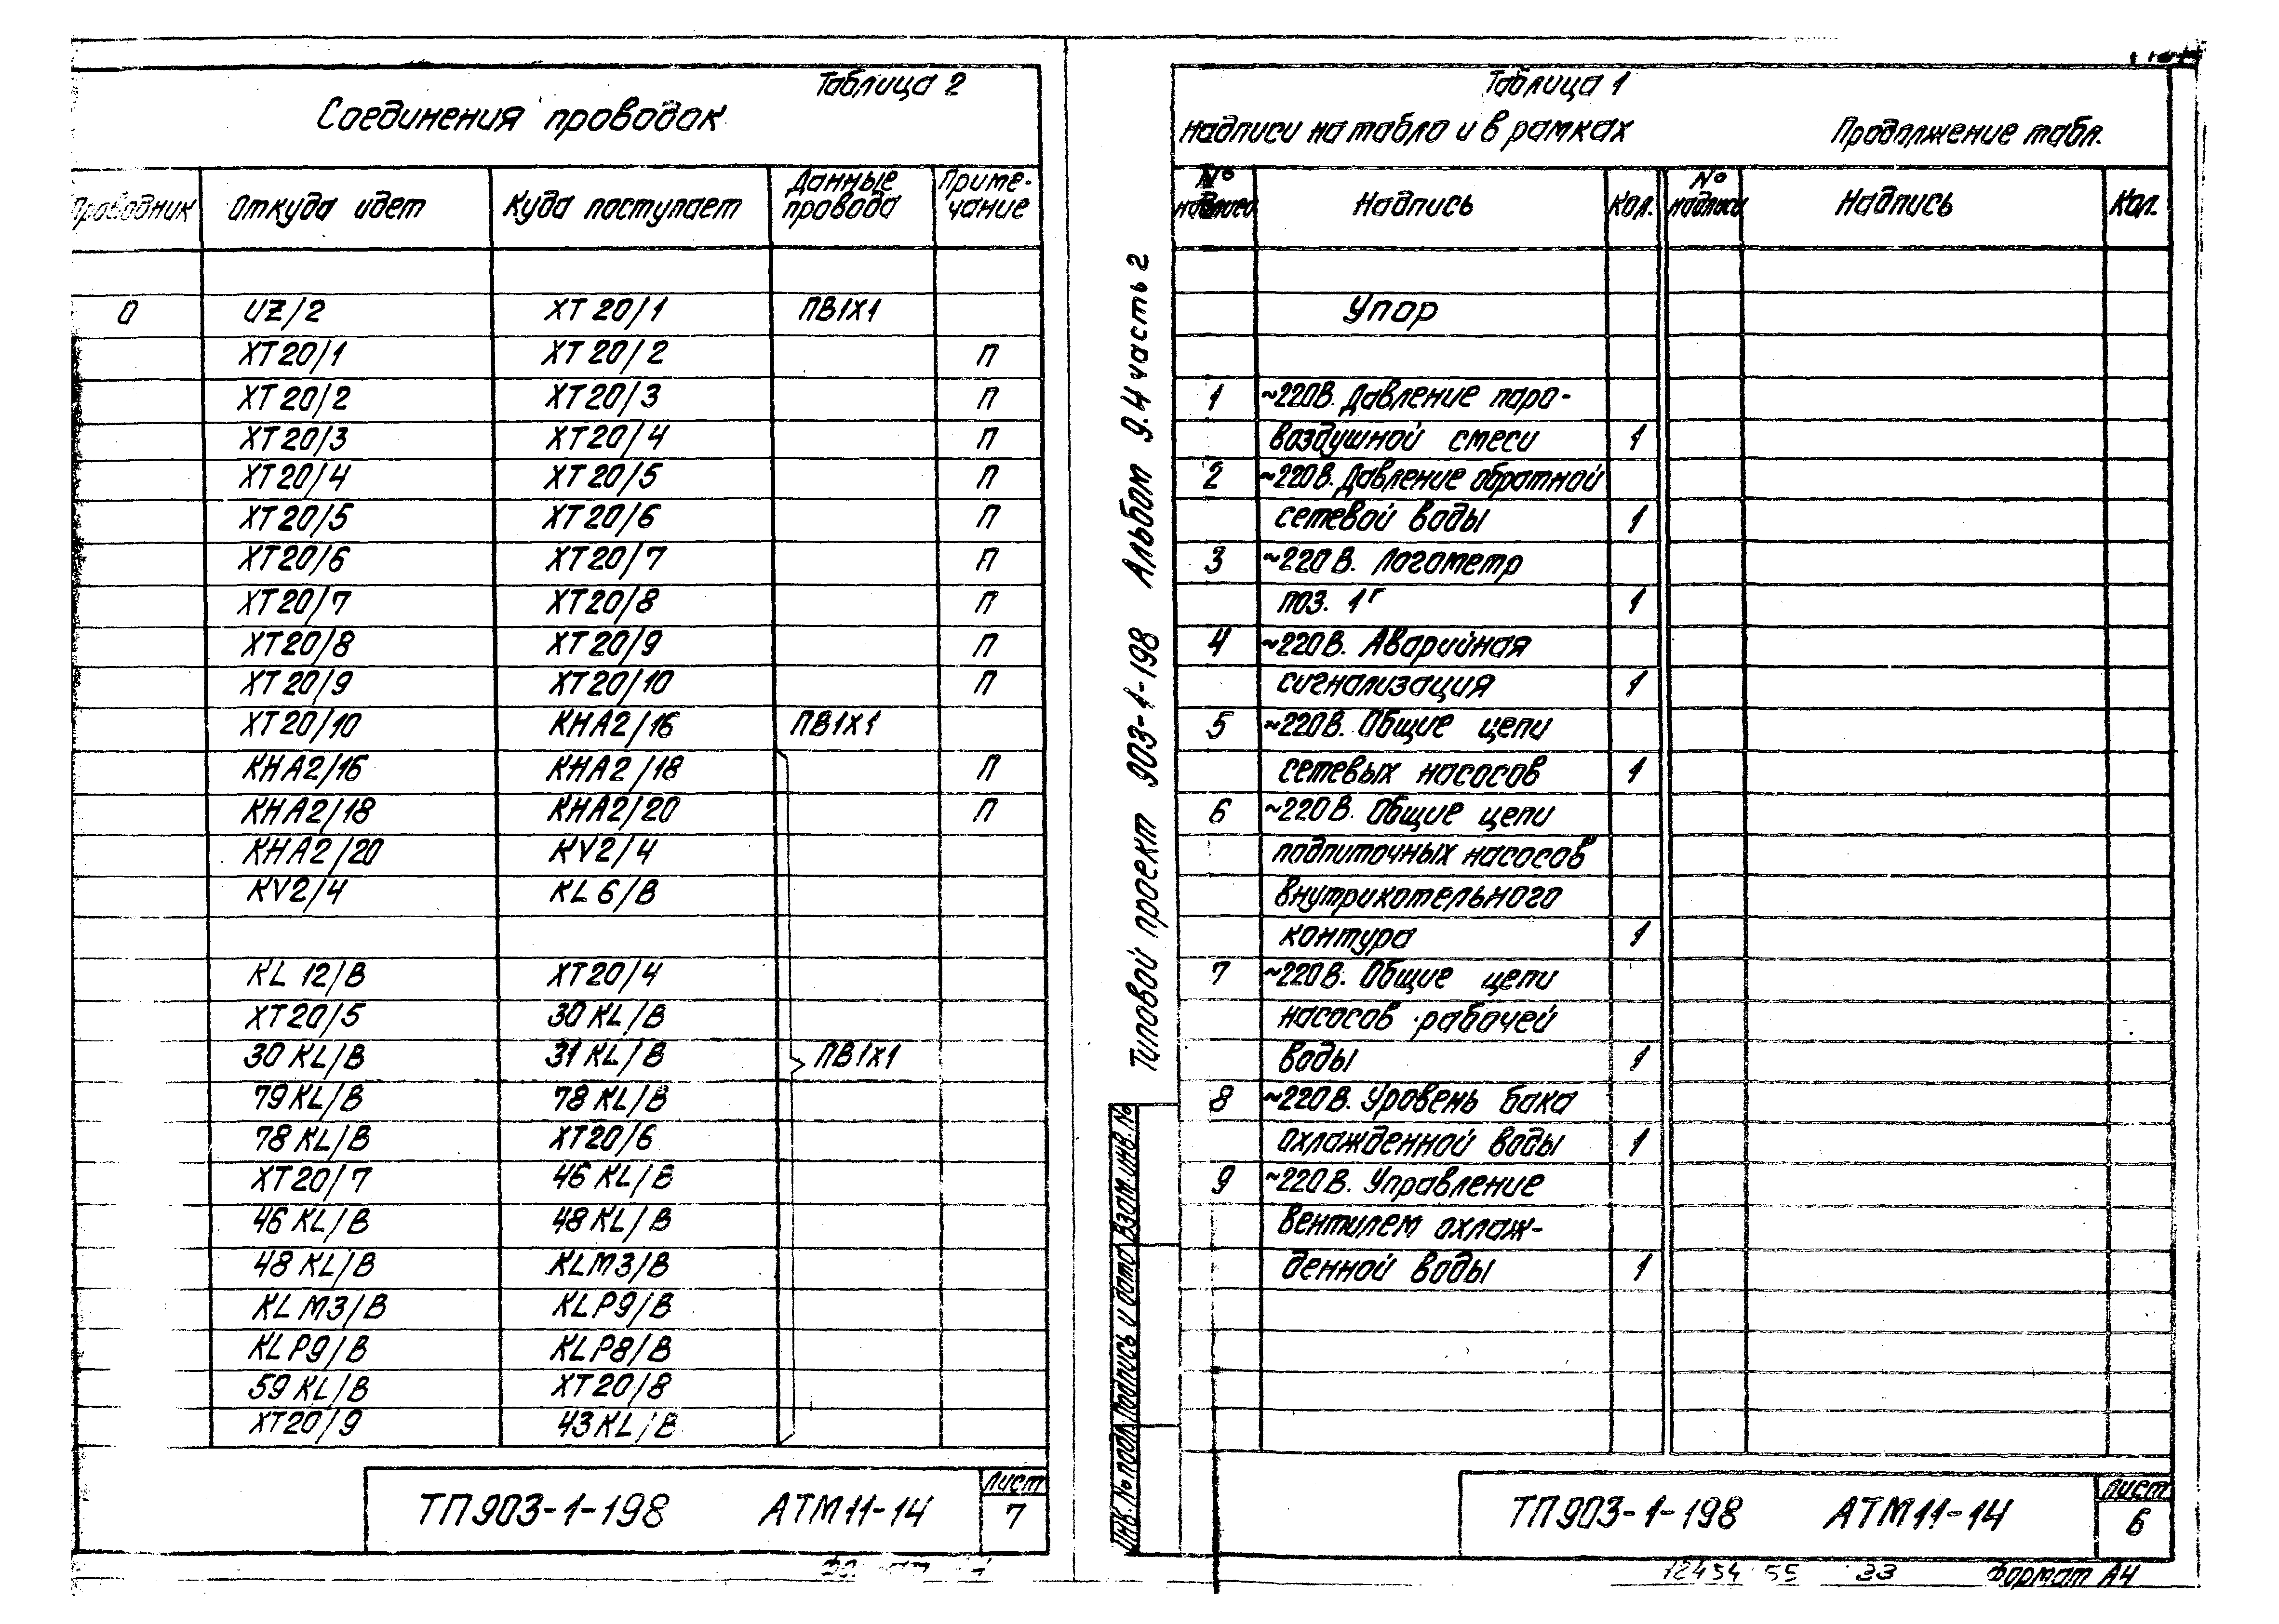 Таблица 2
Соединения проводок
Проводник Откуда идет Куда поступает Данные провода Приме-чание
0 UZ/2 ХТ20/1 ПВ1Х1
ХТ20/1 ХТ20/2 П
ХТ20/2 ХТ20/3 П
ХТ20/3 ХТ20/4 П
ХТ20/4 ХТ20/5 П
ХТ20/5 ХТ20/6 П
ХТ20/6 ХТ20/7 П
ХТ20/7 ХТ20/8 П
ХТ20/8 ХТ20/9 П
ХТ20/9 ХТ20/10 П
ХТ20/10 КНА2/16 ПВ1Х1
КНА2/16 КНА2/18 П
КНА2/18 КНА2/20 П
КНА2/20 KV2/4
KV2/4 KL6/В
KL12/В ХТ20/4
ХТ20/5 30KL/В
30KL/В 31KL/В ПВ1Х1
79KL/В 78KL/В
78KL/В ХТ20/6
ХТ20/7 46KL/В
46KL/В 48KL/В
48KL/В KLM3/В
KLM3/В KLP9/В
KLP9/В KLP8/В
59KL/В ХТ20/8
ХТ20/9 43KL/В
ТП903-1-198 АТМ11-14 Лист 7
Типовой проект 903-1-198 Альбом 9.4 часть 2
Инв. № подл. Подпись и дата Взам. инв. №
Таблица 1
Надписи на табло и в рамках Продолжение табл.
№ надписи Надпись Кол. № надписи Надпись Кол.
Упор
1 ~220В. Давление паро-
воздушной смеси 1
2 ~220В. Давление обратной
сетевой воды 1
3 ~220В. Логометр
поз. 1г 1
4 ~220В. Аварийная
сигнализация 1
5 ~220В. Общие цепи
сетевых насосов 1
6 ~220В. Общие цепи
подпиточных насосов
внутрикотельного
контура 1
7 ~220В. Общие цепи
насосов рабочей
воды 1
8 ~220В. Уровень бака
охлажденной воды 1
9 ~220В. Управление
вентилем охлаж-
денной воды 1
ТП903-1-198 АТМ11-14 Лист 6
12454 55 33 Формат А4